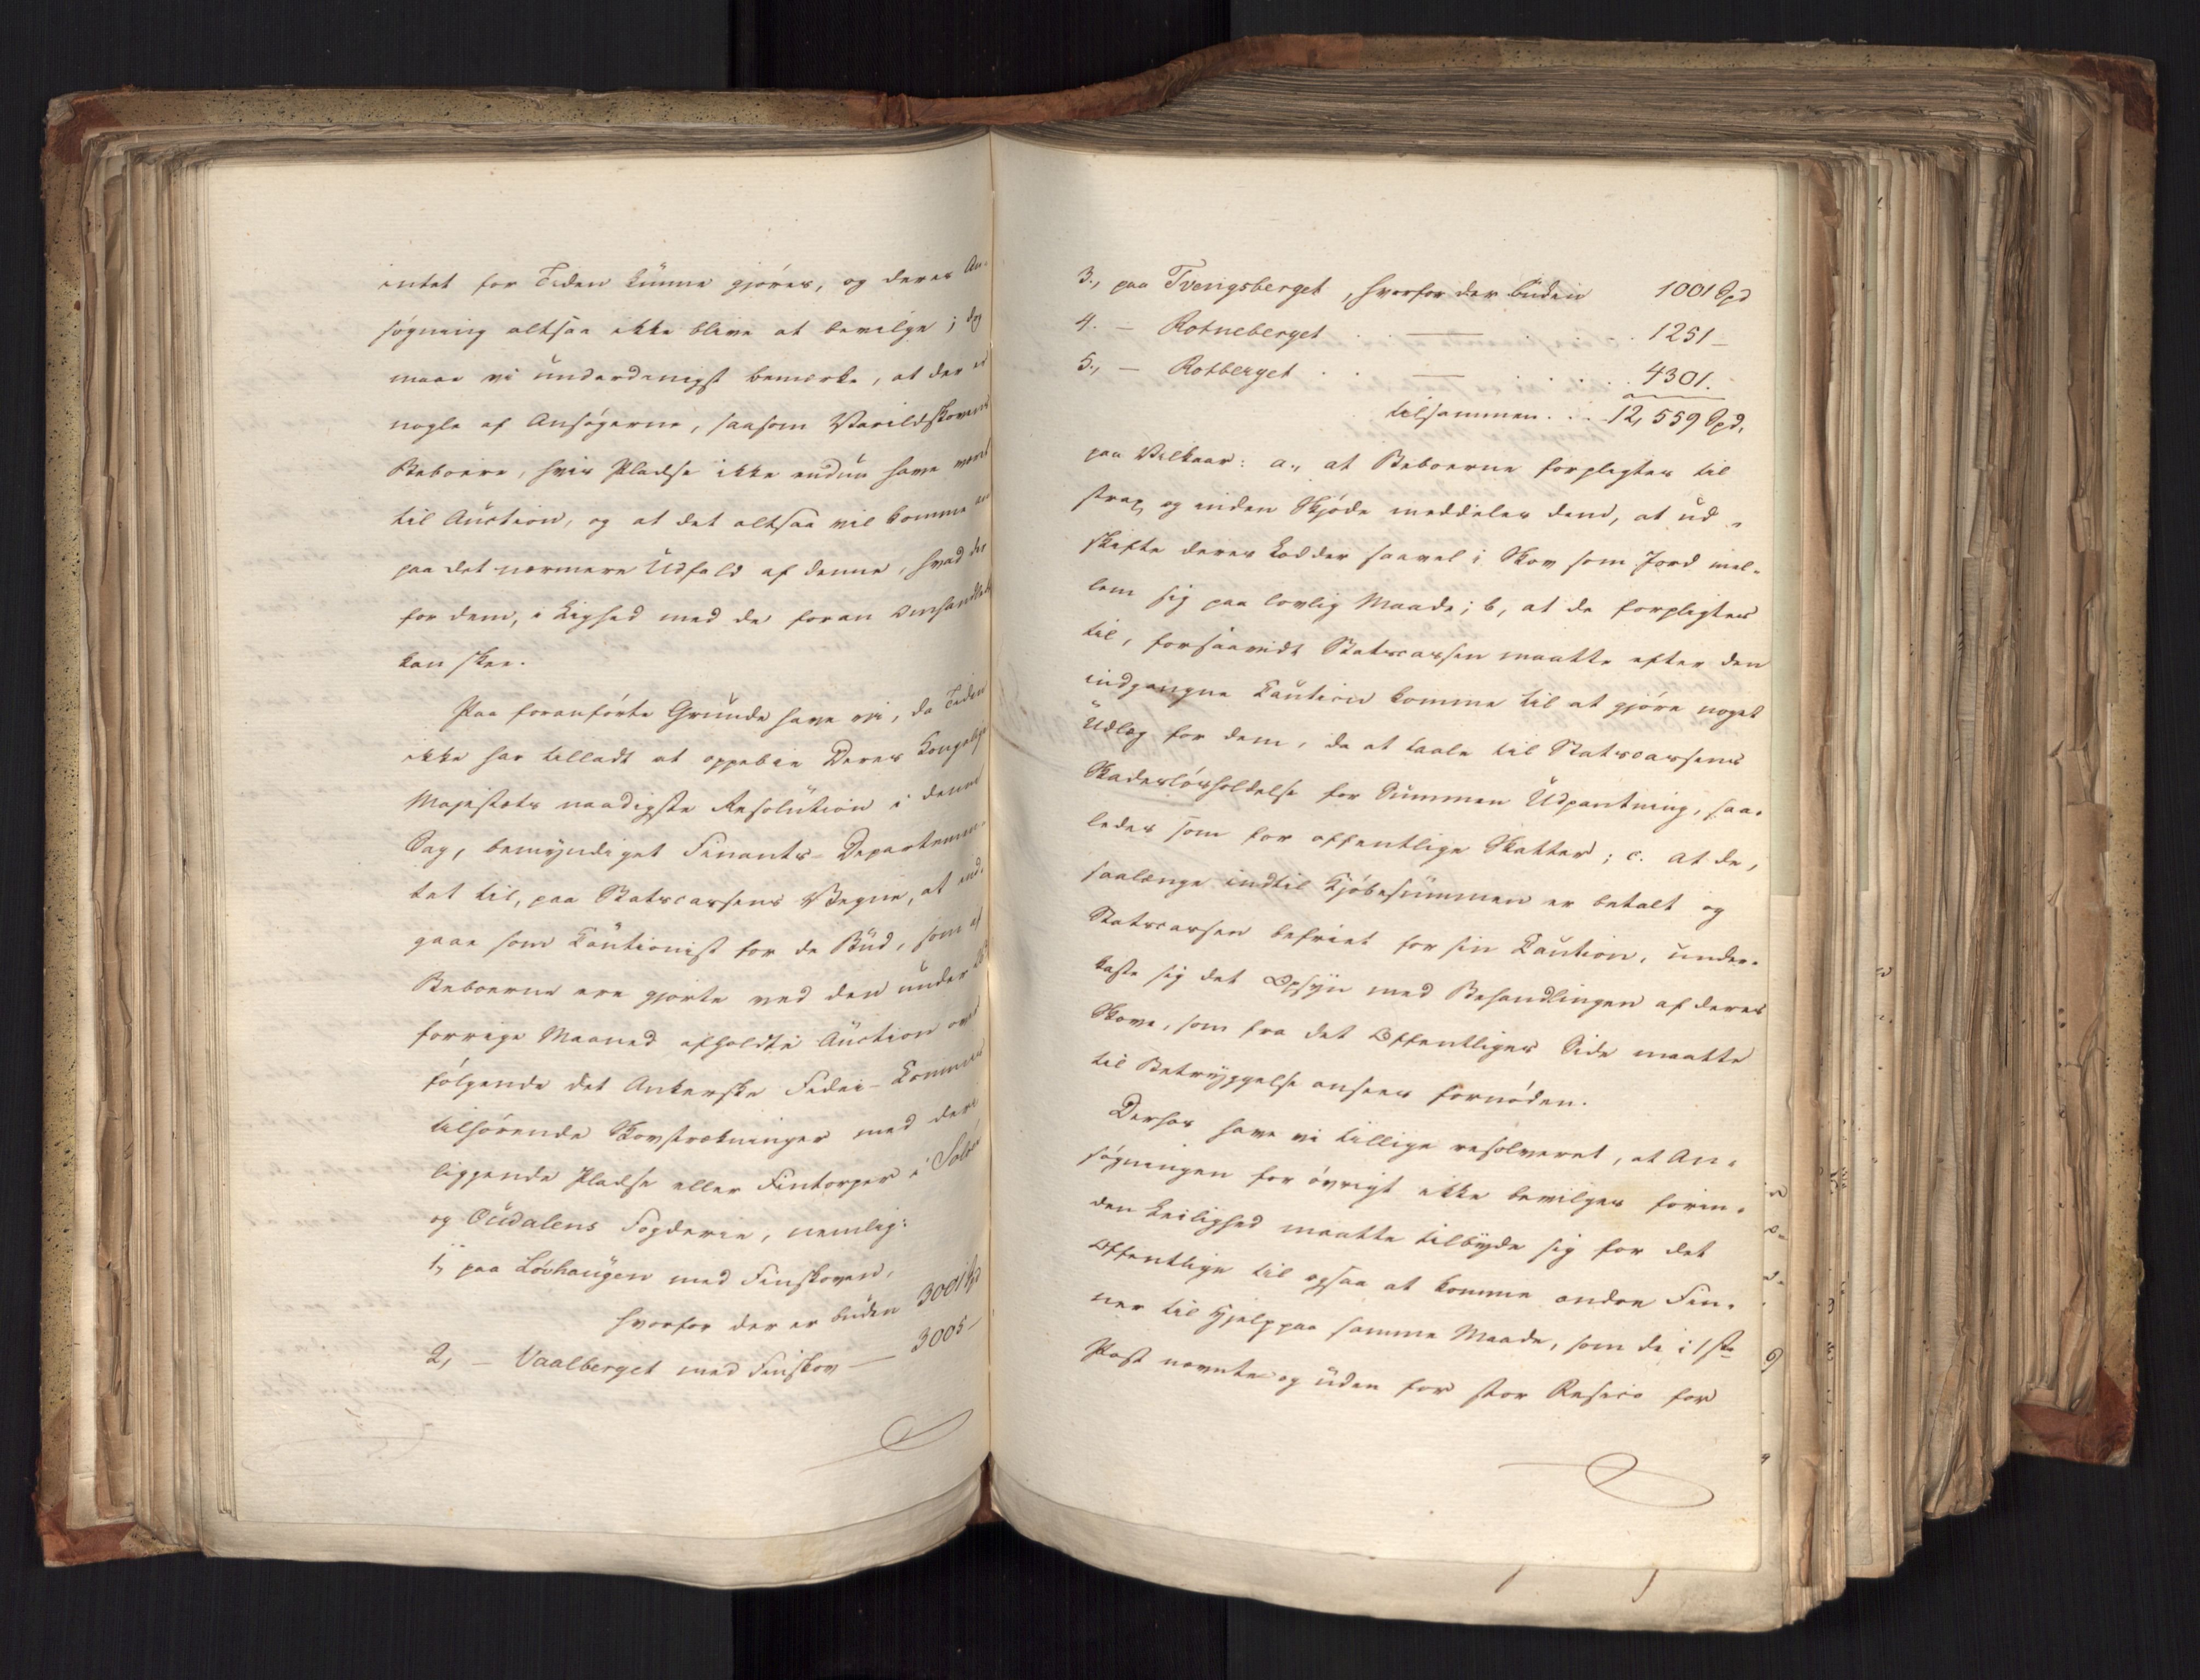 intet for Tiden kunne gjöres, og deres An-
søgning altsaa ikke blive at bevilge; dog
maae vi underdanigst bemærke, at der er
nogle af Ansøgerne, saasom Varildskovens
Beboere, hvis Pladse ikke endnu have været
til Auction, og at det altsaa vil komme an
paa det nærmere Udfald af denne, hvad der
for dem, i Lighed med de foran omhandlede
kan skee.
Paa foranførte Grunde have vi, da Tiden
ikke har tilladt at oppebie Deres Kongelige
Majestæts naadigste Resolution i denne
Sag, bemyndiget Finants-Departemen-
tet til, paa Statscassens Vegne, at ind-
gaae som Cautionist for de Bud, som af
Beboerne ere gjorte ved den under
forrige Maaned afholdte Auction over
følgende det Ankerske Fidei-Commis
tilhørende Skovstrækninger med deri
liggende Pladse eller Fintorper i Solöer
og Oüdalens Fogderie, nemlig:
1, paa Lövhaugen med Finskoven,
hvorfor der er buden 3001 Spd
2, — Vaalberget med Finskov — 3005 —
3., paa Tvengsberget, hvorfor der buden 1001 Spd
4. — Rotneberget . . — . . . 1251 —
5., — Rotberget . . — . . . . 4301.
tilsammen . . . 12,559 Spd,
paa Vilkaar: a., at Beboerne forpligtes til
strax og inden Skjöde meddeles dem, at ud-
skifte deres Lodder saavel i Skov som Jord mel-
lem sig paa lovlig Maade; b, at de forpligtes
til, forsaavidt Statscassen maatte efter den
indgangne Caution komme til at gjöre noget
Udlæg for dem, da at taale til Statscassens
Skadeslösholdelse for Summen Udpantning, saa-
ledes som for offentlige Skatter; c. at de,
saalænge indtil Kjöbesummen er betalt og
Statscassen befriet for sin Caution, under-
kaste sig det Opsyn med Behandlingen af deres
Skove, som fra det Offentliges Side maatte
til Betryggelse ansees fornöden.
Derhos have vi tillige resolveret, at An-
søgningen for övrigt ikke bevilges forin-
den Leilighed maatte tilbyde sig for det
Offentlige til ogsaa at komme andre Fin-
ner til Hjelp paa samme Maade, som de i 1ste
Post nævnte og uden for stor Resico for